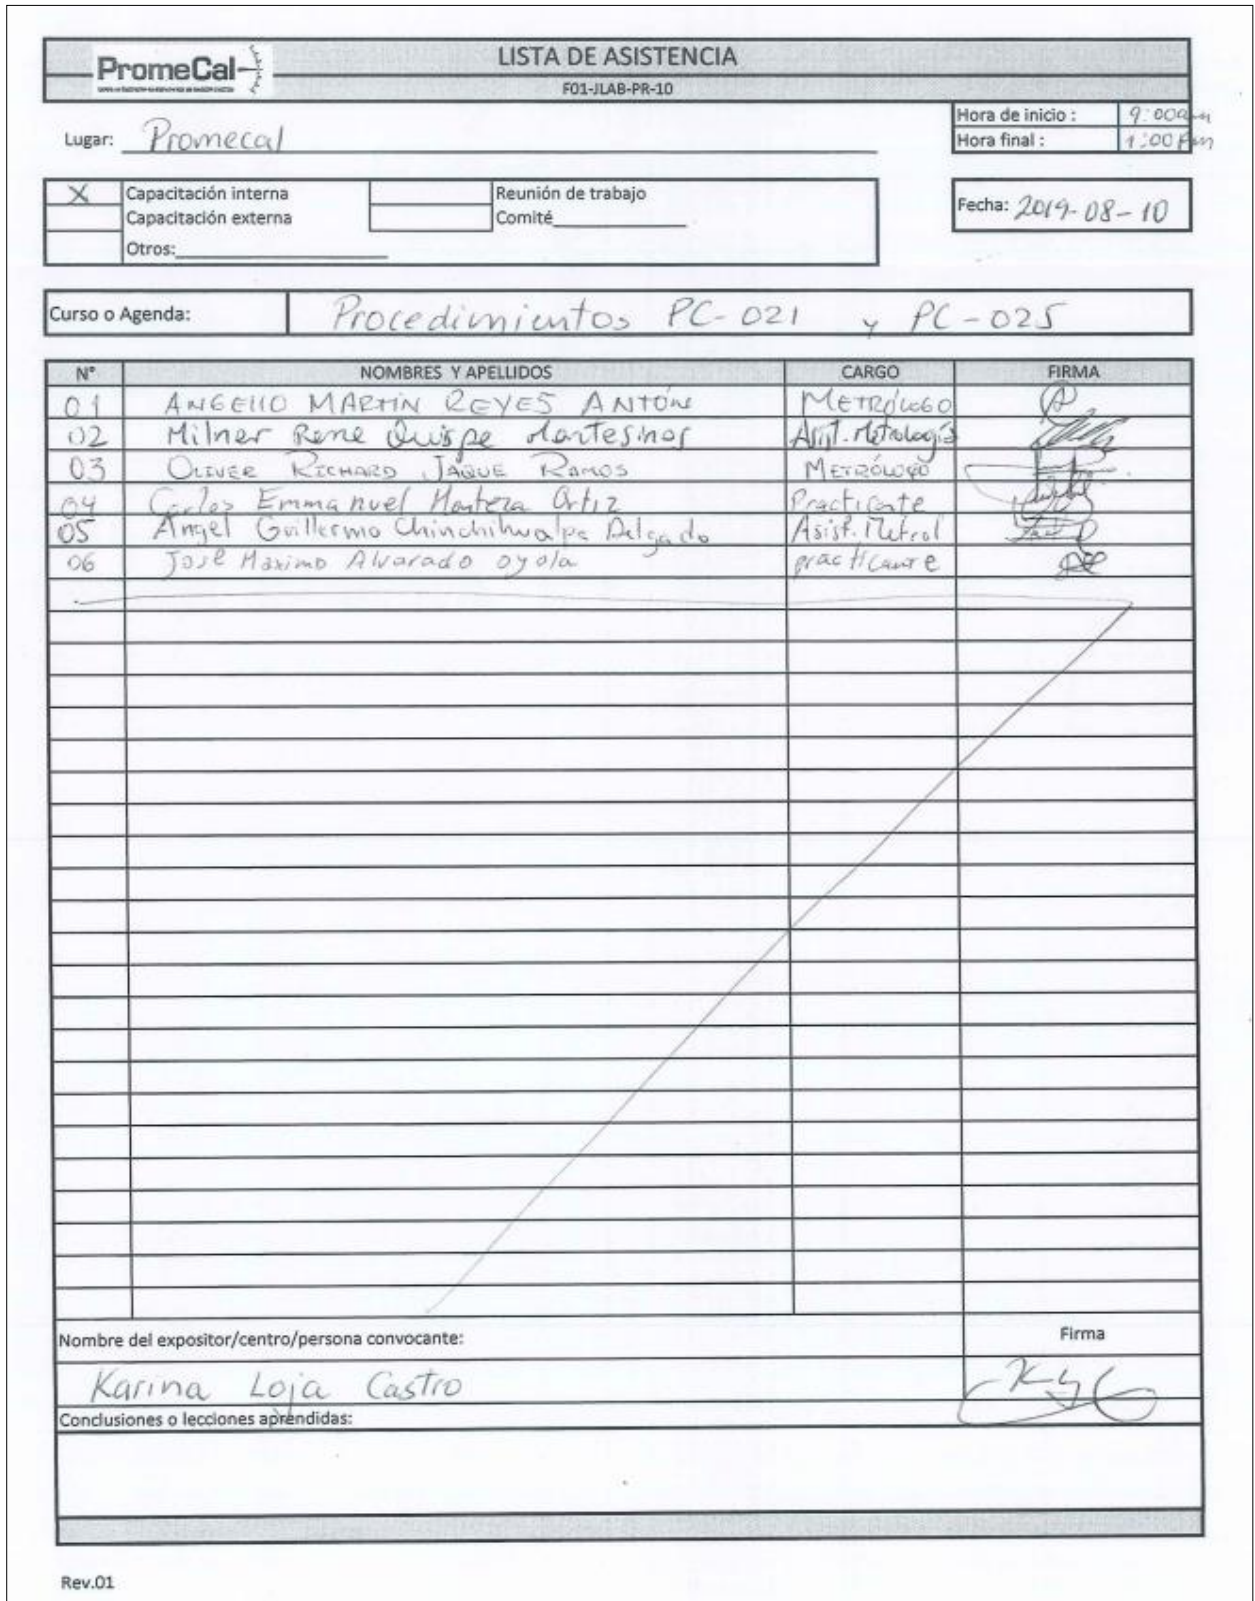 PromeCal
LISTA DE ASISTENCIA
F01-JLAB-PR-10
Lugar: Promecal
Hora de inicio : 9:00am
Hora final : 1:00pm
X Capacitación interna Reunión de trabajo
Capacitación externa Comité
Otros:
Fecha: 2019-08-10
Curso o Agenda: Procedimientos PC-021 y PC-025
N° NOMBRES Y APELLIDOS CARGO FIRMA
01 ANGELLO MARTIN REYES ANTÓN METRÓLOGO
02 Milner Rene Quispe Montesinos Asist. Metrología
03 OLIVER RICHARD JAQUE RAMOS METRÓLOGO
04 Carlos Emmanuel Ortiz Practicante
05 Angel Guillermo Chinchihualpa Delgado Asist. Metrol
06 Jose Maximo Alvarado oyola practicante
Nombre del expositor/centro/persona convocante: Firma
Karina Loja Castro
Conclusiones o lecciones aprendidas:
Rev.01